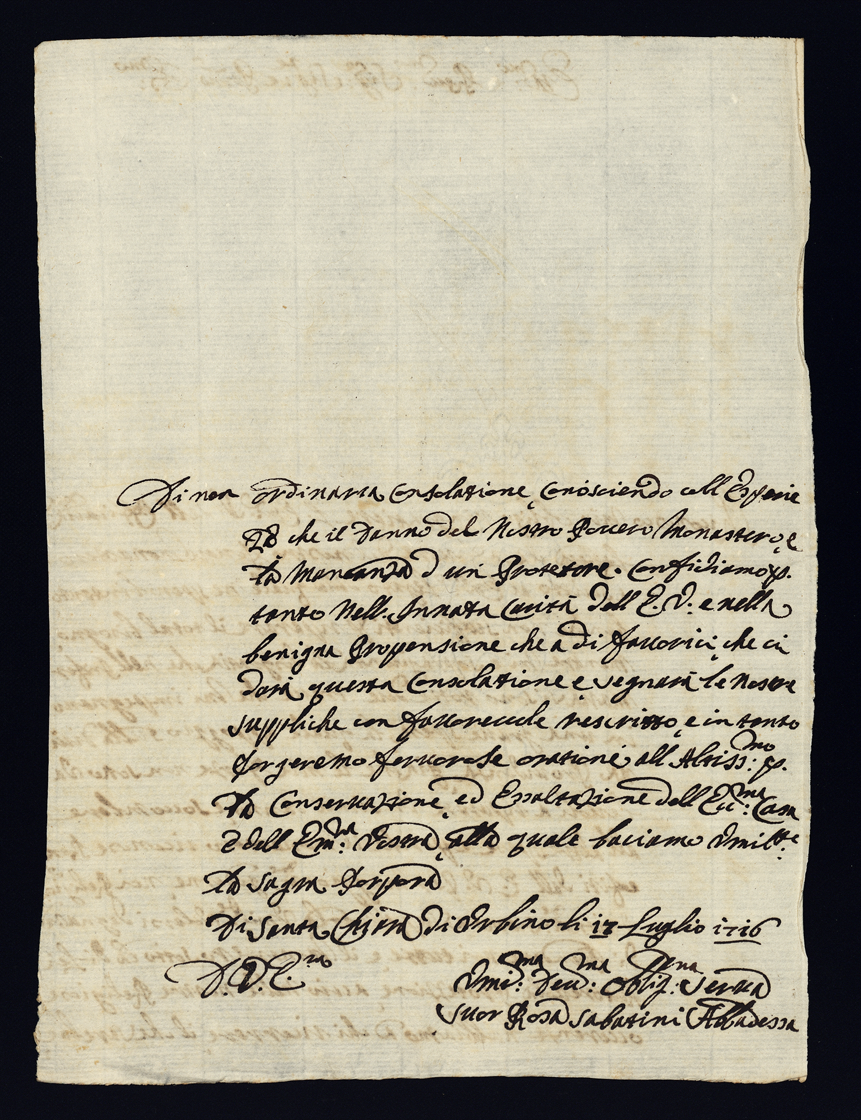 Di non ordinaria Consolatione, Conosciendo coll Esperie
za che il danno del Nostro Povero Monastero, e
la Mancanza d un Protetore. Confidiamo p.
tanto Nell. Innata Carità dell E. V. e nella
benigna Propensione che a di favorici, che ci
darà questa Consolatione e segnarà le nostre
suppliche con favorevole rescritto, e in tanto
porgeremo fervorose orationi all Altiss:mo p.
la Conservazione, ed Esaltazione dell Ecc:ma Casa
e dell Em:za Vostra, alla quale baciamo Umilte:
la sagra Porpora
Di Santa Chiara di Urbino li 17 Luglio 1716
D. V. E.za
Umi:ma Dev:ma Oblig:ma Serva
Suor Rosa Sabatini Abbadessa